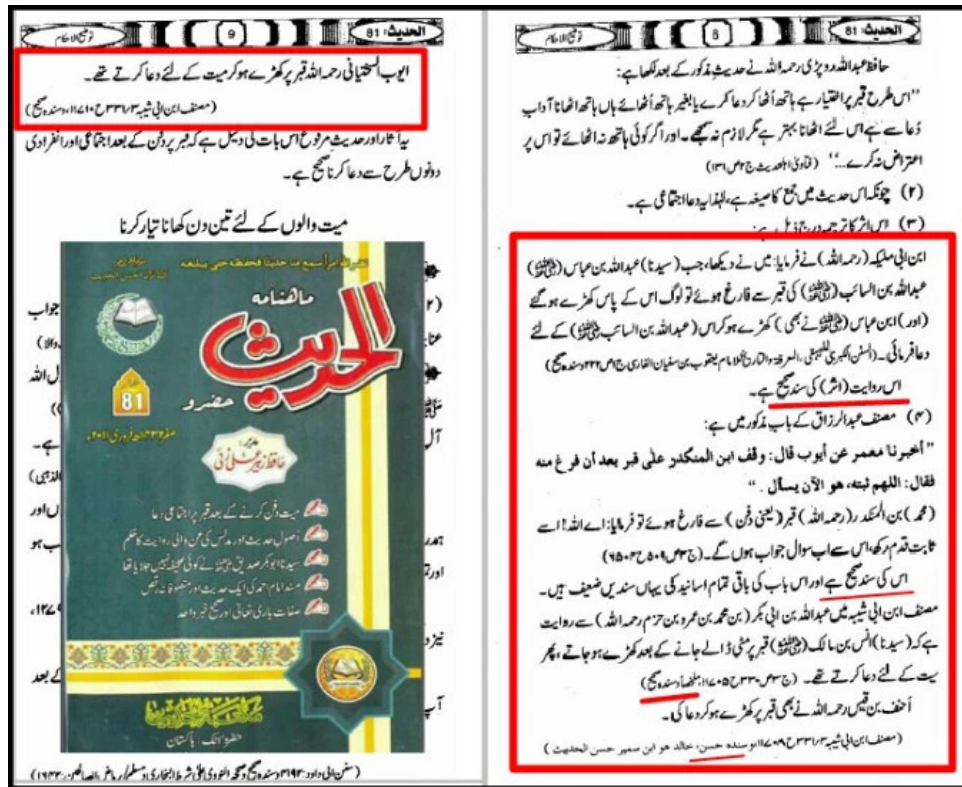 الحدیث: 81
8
توضیح الاحکام
حافظ عبداللہ روپڑی رحمہ اللہ نے حدیث مذکور کے بعد لکھا ہے:
"اس طرح قبر پر اختیار ہے ہاتھ اُٹھا کر دعا کرے یا بغیر ہاتھ اُٹھائے ہاں ہاتھ اٹھانا آداب
دُعا سے ہے اس لئے اٹھانا بہتر ہے مگر لازم نہ سمجھے۔ اور اگر کوئی ہاتھ نہ اٹھائے تو اس پر
اعتراض نہ کرے..." (فتاویٰ اہلحدیث ج۲ص۱۳۱)
(۲) چونکہ اس حدیث میں جمع کا صیغہ ہے، لہٰذا یہ دعا اجتماعی ہے۔
(۳) اس اثر کا ترجمہ درج ذیل ہے:
ابن ابی ملیکہ (رحمہ اللہ) نے فرمایا: میں نے دیکھا، جب (سیدنا) عبداللہ بن عباس (رضی اللہ عنہ)
عبداللہ بن السائب (رضی اللہ عنہ) کی قبر سے فارغ ہوئے تو لوگ اس کے پاس کھڑے ہوگئے
(اور) ابن عباس (رضی اللہ عنہ نے بھی) کھڑے ہو کر اس (عبداللہ بن السائب رضی اللہ عنہ) کے لئے
دعا فرمائی۔ (السنن الکبریٰ للبیہقی، المعرفۃ والتاریخ للامام یعقوب بن سفیان الفارسی ج۱ص۲۲۲ وسندہ صحیح)
اس روایت (اثر) کی سند صحیح ہے۔
(۴) مصنف عبدالرزاق کے باب مذکور میں ہے:
"أخبرنا معمر عن أيوب قال: وقف ابن المنكدر على قبر بعد أن فرغ منه
فقال: اللهم ثبته، هو الآن يسأل."
(محمد) بن المنکدر (رحمہ اللہ) قبر (یعنی دفن) سے فارغ ہوئے تو فرمایا: اے اللہ! اسے
ثابت قدم رکھ، اس سے اب سوال جواب ہوں گے۔ (ج۳ص۵۰۹ح۶۵۰۴)
اس کی سند صحیح ہے اور اس باب کی باقی تمام اسانید کی یہاں سندیں ضعیف ہیں۔
مصنف ابن ابی شیبہ میں عبداللہ بن ابی بکر (بن محمد بن عمرو بن حزم رحمہ اللہ) سے روایت
ہے کہ (سیدنا) انس بن مالک (رضی اللہ عنہ) قبر پر مٹی ڈالے جانے کے بعد کھڑے ہو جاتے، پھر
یت کے لئے دعا کرتے تھے۔ (ج۳ص۳۳۰ح۱۱۷۰۵، ملخصاً وسندہ صحیح)
اَحنف بن قیس رحمہ اللہ نے بھی قبر پر کھڑے ہو کر دعا کی۔
(مصنف ابن ابی شیبہ ۳/۳۳۱ح۱۱۷۰۸، وسندہ حسن، خالد هو ابن سمير حسن الحديث)
الحدیث: 81
9
توضیح الاحکام
ایوب السختیانی رحمہ اللہ قبر پر کھڑے ہو کر میت کے لئے دعا کرتے تھے۔
(مصنف ابن ابی شیبہ ۳/۳۳۱ح۱۱۷۱۰، وسندہ صحیح)
یہ آثار اور حدیث مرفوع اس بات کی دلیل ہے کہ قبر پر دفن کے بعد اجتماعی اور انفرادی
دونوں طرح سے دعا کرنا صحیح ہے۔
میت والوں کے لئے تین دن کھانا تیار کرنا
نضر الله امرأ سمع منا حديثا فحفظه حتى يبلغه
ماہنامہ
الحدیث
حضرو
81
صفر ۱۴۳۲ھ فروری ۲۰۱۱ء
مدیر:
حافظ زبیر علی زئی
میت دفن کرنے کے بعد قبر پر اجتماعی دعا
اُصولِ حدیث اور مدلس کی عن والی روایت کا حکم
سیدنا ابوبکر صدیق رضی اللہ عنہ نے کوئی صحیفہ نہیں جلایا تھا
مسند امام احمد کی ایک حدیث اور متصوفانہ رقص
صفات باری تعالیٰ اور صحیح خبر واحد
حضرو اٹک: پاکستان
جواب
ل اللہ
ہے۔
ں اور
ب ہو
کے بعد
(سنن ابی داود: ۴۱۹۲ وسندہ صحیح وصححہ النووی علیٰ شرط البخاری ومسلم / ریاض الصالحین: ۱۶۴۲)